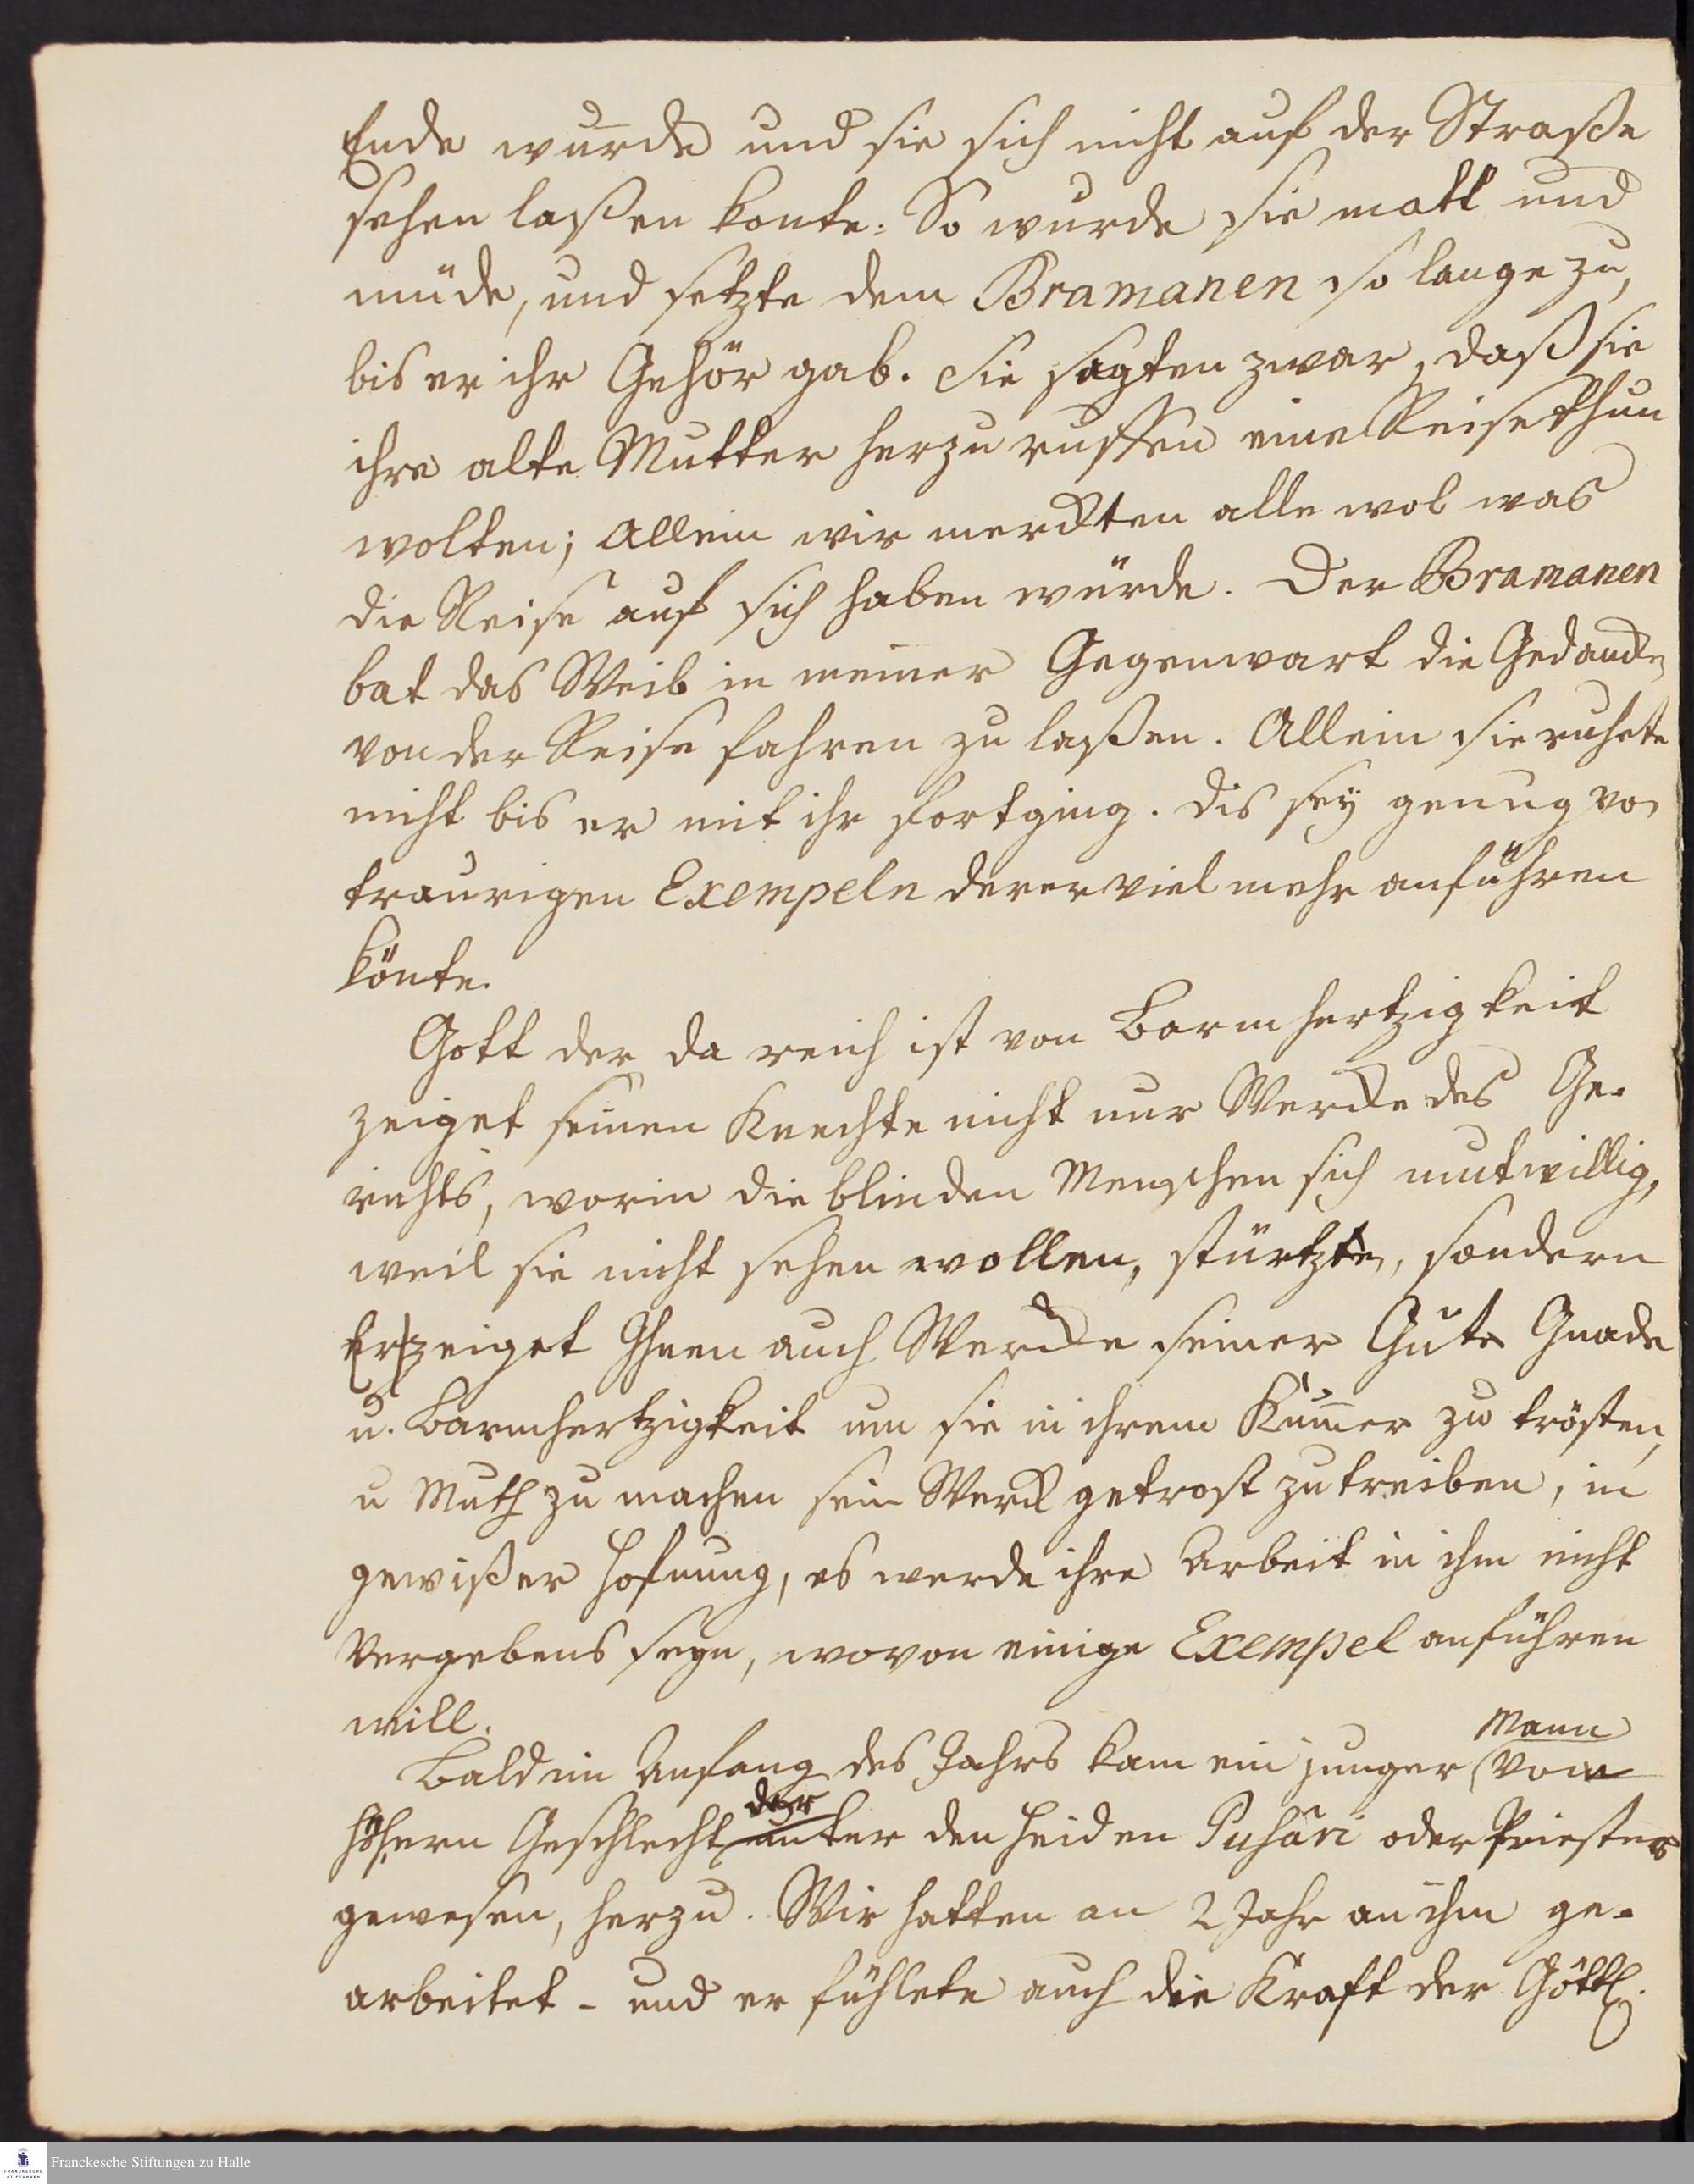 Ende wurde und sie sich nicht auf der Straße
sehen laßen konte: So wurde sie matt und
müde, und setzte dem Bramanen so lange zu,
bis er ihr Gehör gab. Sie sagten zwar, daß sie
ihre alte Mutter herzu ruffen eine Reise thun
wolten; Allein wir merckten alle wol was
die Reise auf sich haben würde. Der Bramanen
bat das Weib in meiner Gegenwart die Gedancken
von der Reise fahren zu laßen. Allein sie ruhete
nicht bis er mit ihr fortging. Dis sey genug von
traurigen Exempeln derer viel mehr anführen
könte.
Gott der da reich ist von Barmhertzigkeit
zeiget seinen Knechte nicht nur Wercke des Ge-
richts, worin die blinden Menschen sich mutwillig,
weil sie nicht sehen wollen, stürtzten, sondern
Er zeiget Ihnen auch Wercke seiner Güte Gnade
u. Barmhertzigkeit um sie in ihrem Kummer zu trösten,
u Muth zu machen sein Werck getrost zu treiben, in
gewißer Hofnung, es werde ihre Arbeit in ihm nicht
vergebens seyn, wovon einige Exempel anführen
will.
Bald im Anfang des Jahrs kam ein junger Mann vom
höhern Geschlecht der unter den Heiden Pusári oder Priester
gewesen, herzu. Wir hatten an 2 Jahr an ihm ge-
arbeitet - und er fühlete auch die Kraft der Göttl.
Franckesche Stiftungen zu Halle
FRANCKESCHE
STIFTUNGEN